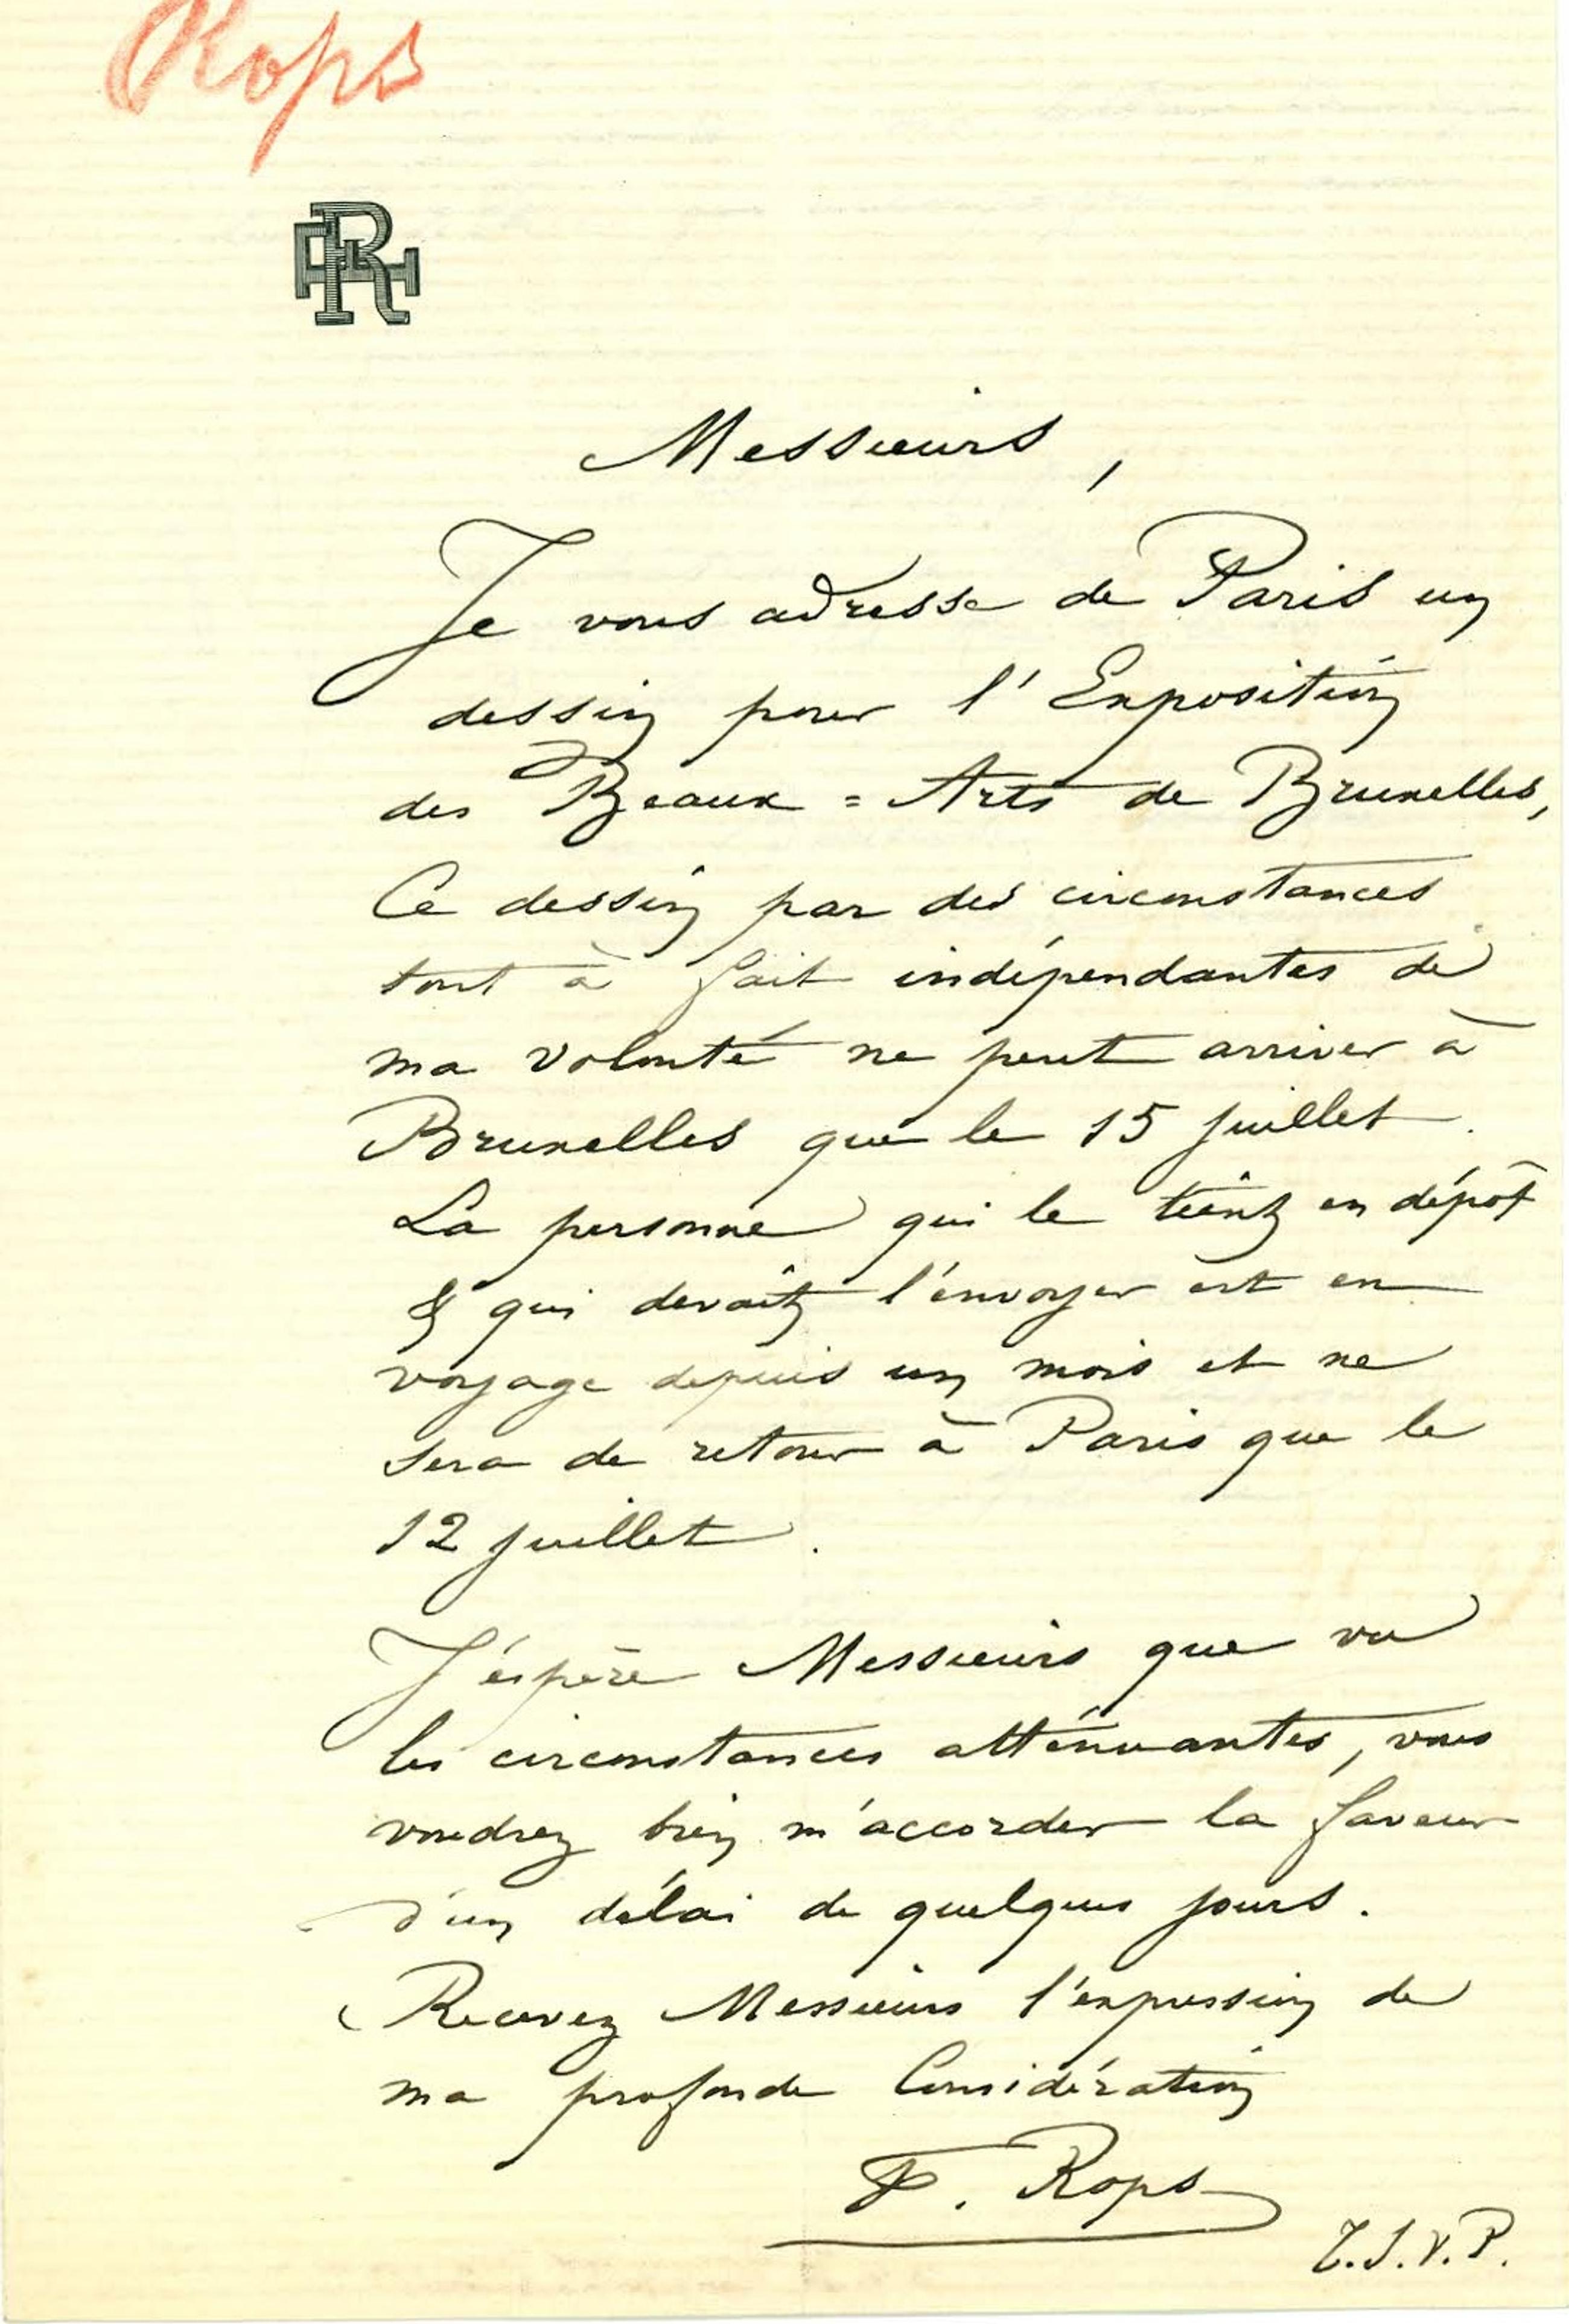 Rops
FR
Messieurs,
Je vous adresse de Paris un
dessin pour l'Exposition
des Beaux=Arts de Bruxelles,
Ce dessin par des circonstances
tout à fait indépendantes de
ma volonté ne peut arriver à
Bruxelles que le 15 juillet.
La personne qui le tient en dépôt
& qui devait l'envoyer est en
voyage depuis un mois et ne
sera de retour à Paris que le
12 juillet.
J'éspère Messieurs que vu
les circonstances atténuantes, vous
voudrez bien m'accorder la faveur
d'un délai de quelques jours.
Recevez Messieurs l'expression de
ma profonde Considération
F. Rops
T.S.V.P.